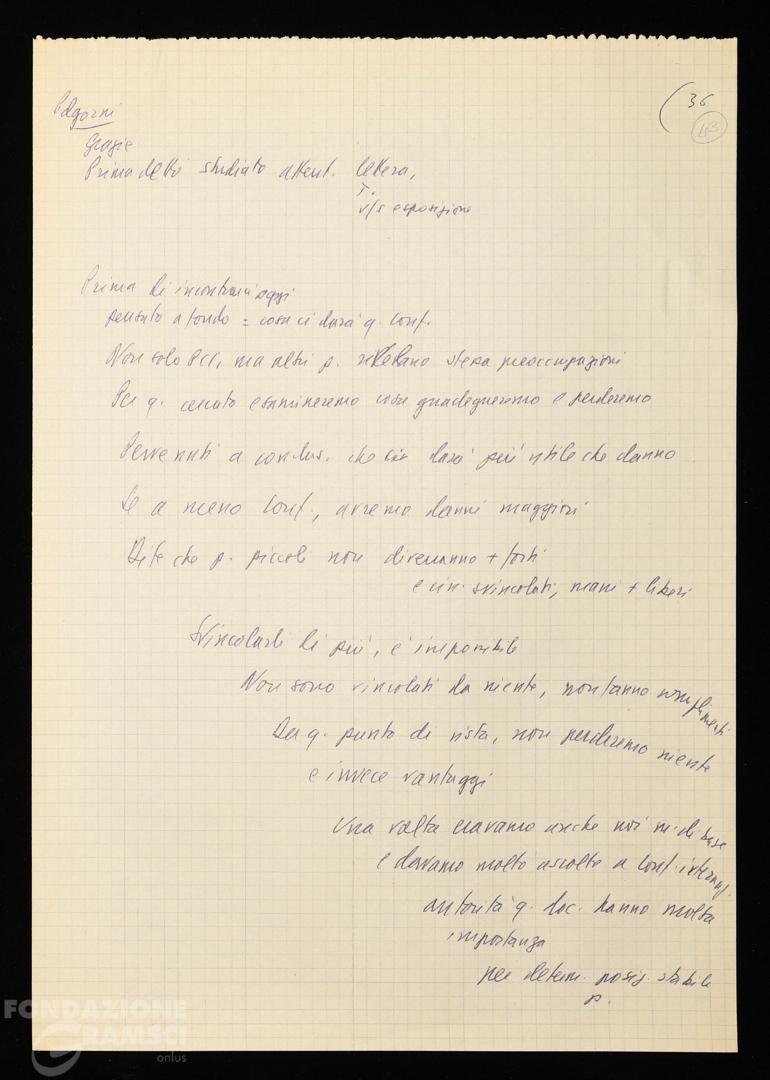 36
43
Pdgorni
Grazie
Prima detto studiato attent. lettera,
v/s esposizione
Prima di incontrarci oggi
pensato a fondo = cosa ci darà q. conf.
Non solo PCI, ma altri p. stessa preoccupazioni
Per q. cercato esamineremo cosa guadagneremo e perderemo
Pervenuti a conclus. che ciò darà più utile che danno
Se a meno conf., avremo danni maggiori
che p. piccoli non diverranno + forti
e svincolati, mani + liberi
Svincolarli di più, è impossibile
Non sono vincolati da niente, non fanno complimenti
Da q. punto di vista, non perderemo niente
e invece vantaggi
Una volta eravamo anche noi m. di base
e davamo molto ascolto a conf. internaz.
autorità q. doc. hanno molta
importanza
per determ. posiz. stabile
p.
FONDAZIONE
GRAMSCI
onlus